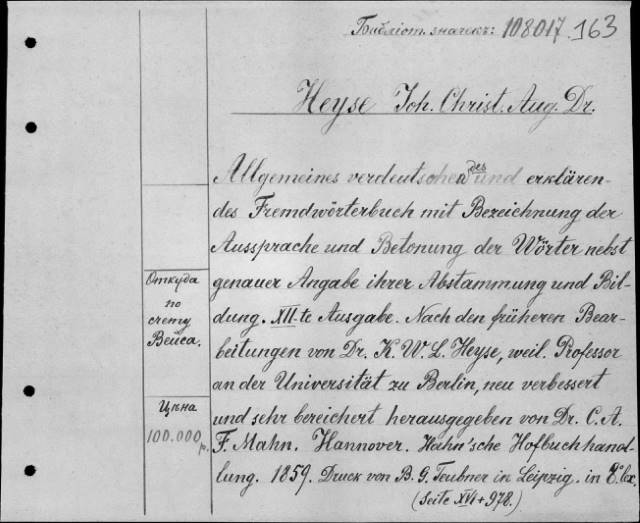 Библіот. значекъ: 108017. 163
Heyse Joh. Christ. Aug. Dr.
Allgemeines verdeutschendes und erklären-
des Fremdwörterbuch mit Bezeichnung der
Aussprache und Betonung der Wörter nebst
genauer Angabe ihrer Abstammung und Bil-
dung. XII-te Ausgabe. Nach den früheren Bear-
beitungen von Dr. K. W. L. Heyse, weil. Professor
an der Universität zu Berlin, neu verbessert
und sehr bereichert herausgegeben von Dr. C. A.
F. Mahn. Hannover. Hahn'sche Hofbuchhand-
lung. 1859. Druck von B. G. Teubner in Leipzig. in
(Seite XVI + 978.)
Откуда
по
счету
Вейса.
Цѣна
100.000 р.